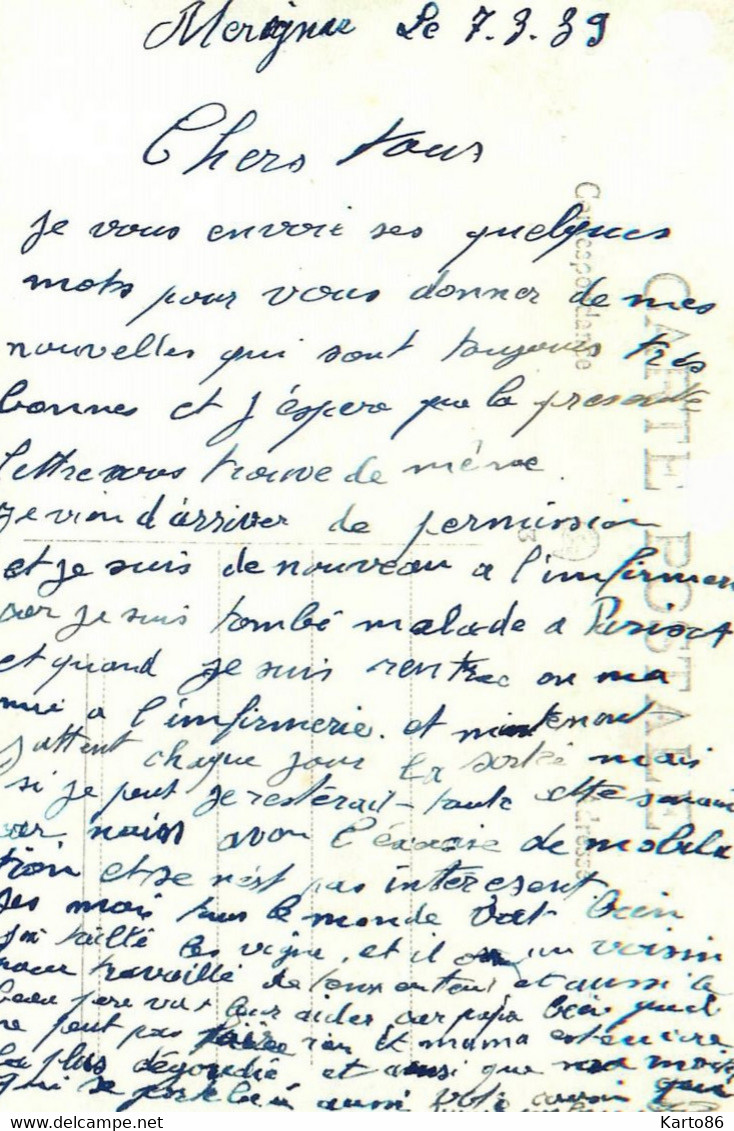 Merignac Le 7.3.39
Chers tous
je vous envoie ses quelques
mots pour vous donner de mes
nouvelles qui sont toujours très
bonnes et j'éspere que la presente
lettre vous trouve de même.
je vien d'arriver de permission
et je suis de nouveau a l'infirmeri
car je suis tombé malade a
et quand je suis rentrée on ma
mie a l'infirmerie. et maintenant
j'attent chaque jour la sortie mais
si je peut je resterait toute cette semain
car nous avon l'éxercise de mobili
tion et se n'ést pas interesent
mais tous le monde vat bien
j'ai taillé les vigne, et il on un voisin
pour travaillé de tenx en tenx et aussi le
beau pere vat leur aider car papa
ne peut pas faire rien et mama est encore
la plus dégourdie et ainsi que
qui se porte aussi votre cousin qui
CARTE POSTALE
Correspondance
Adresse
Karto86